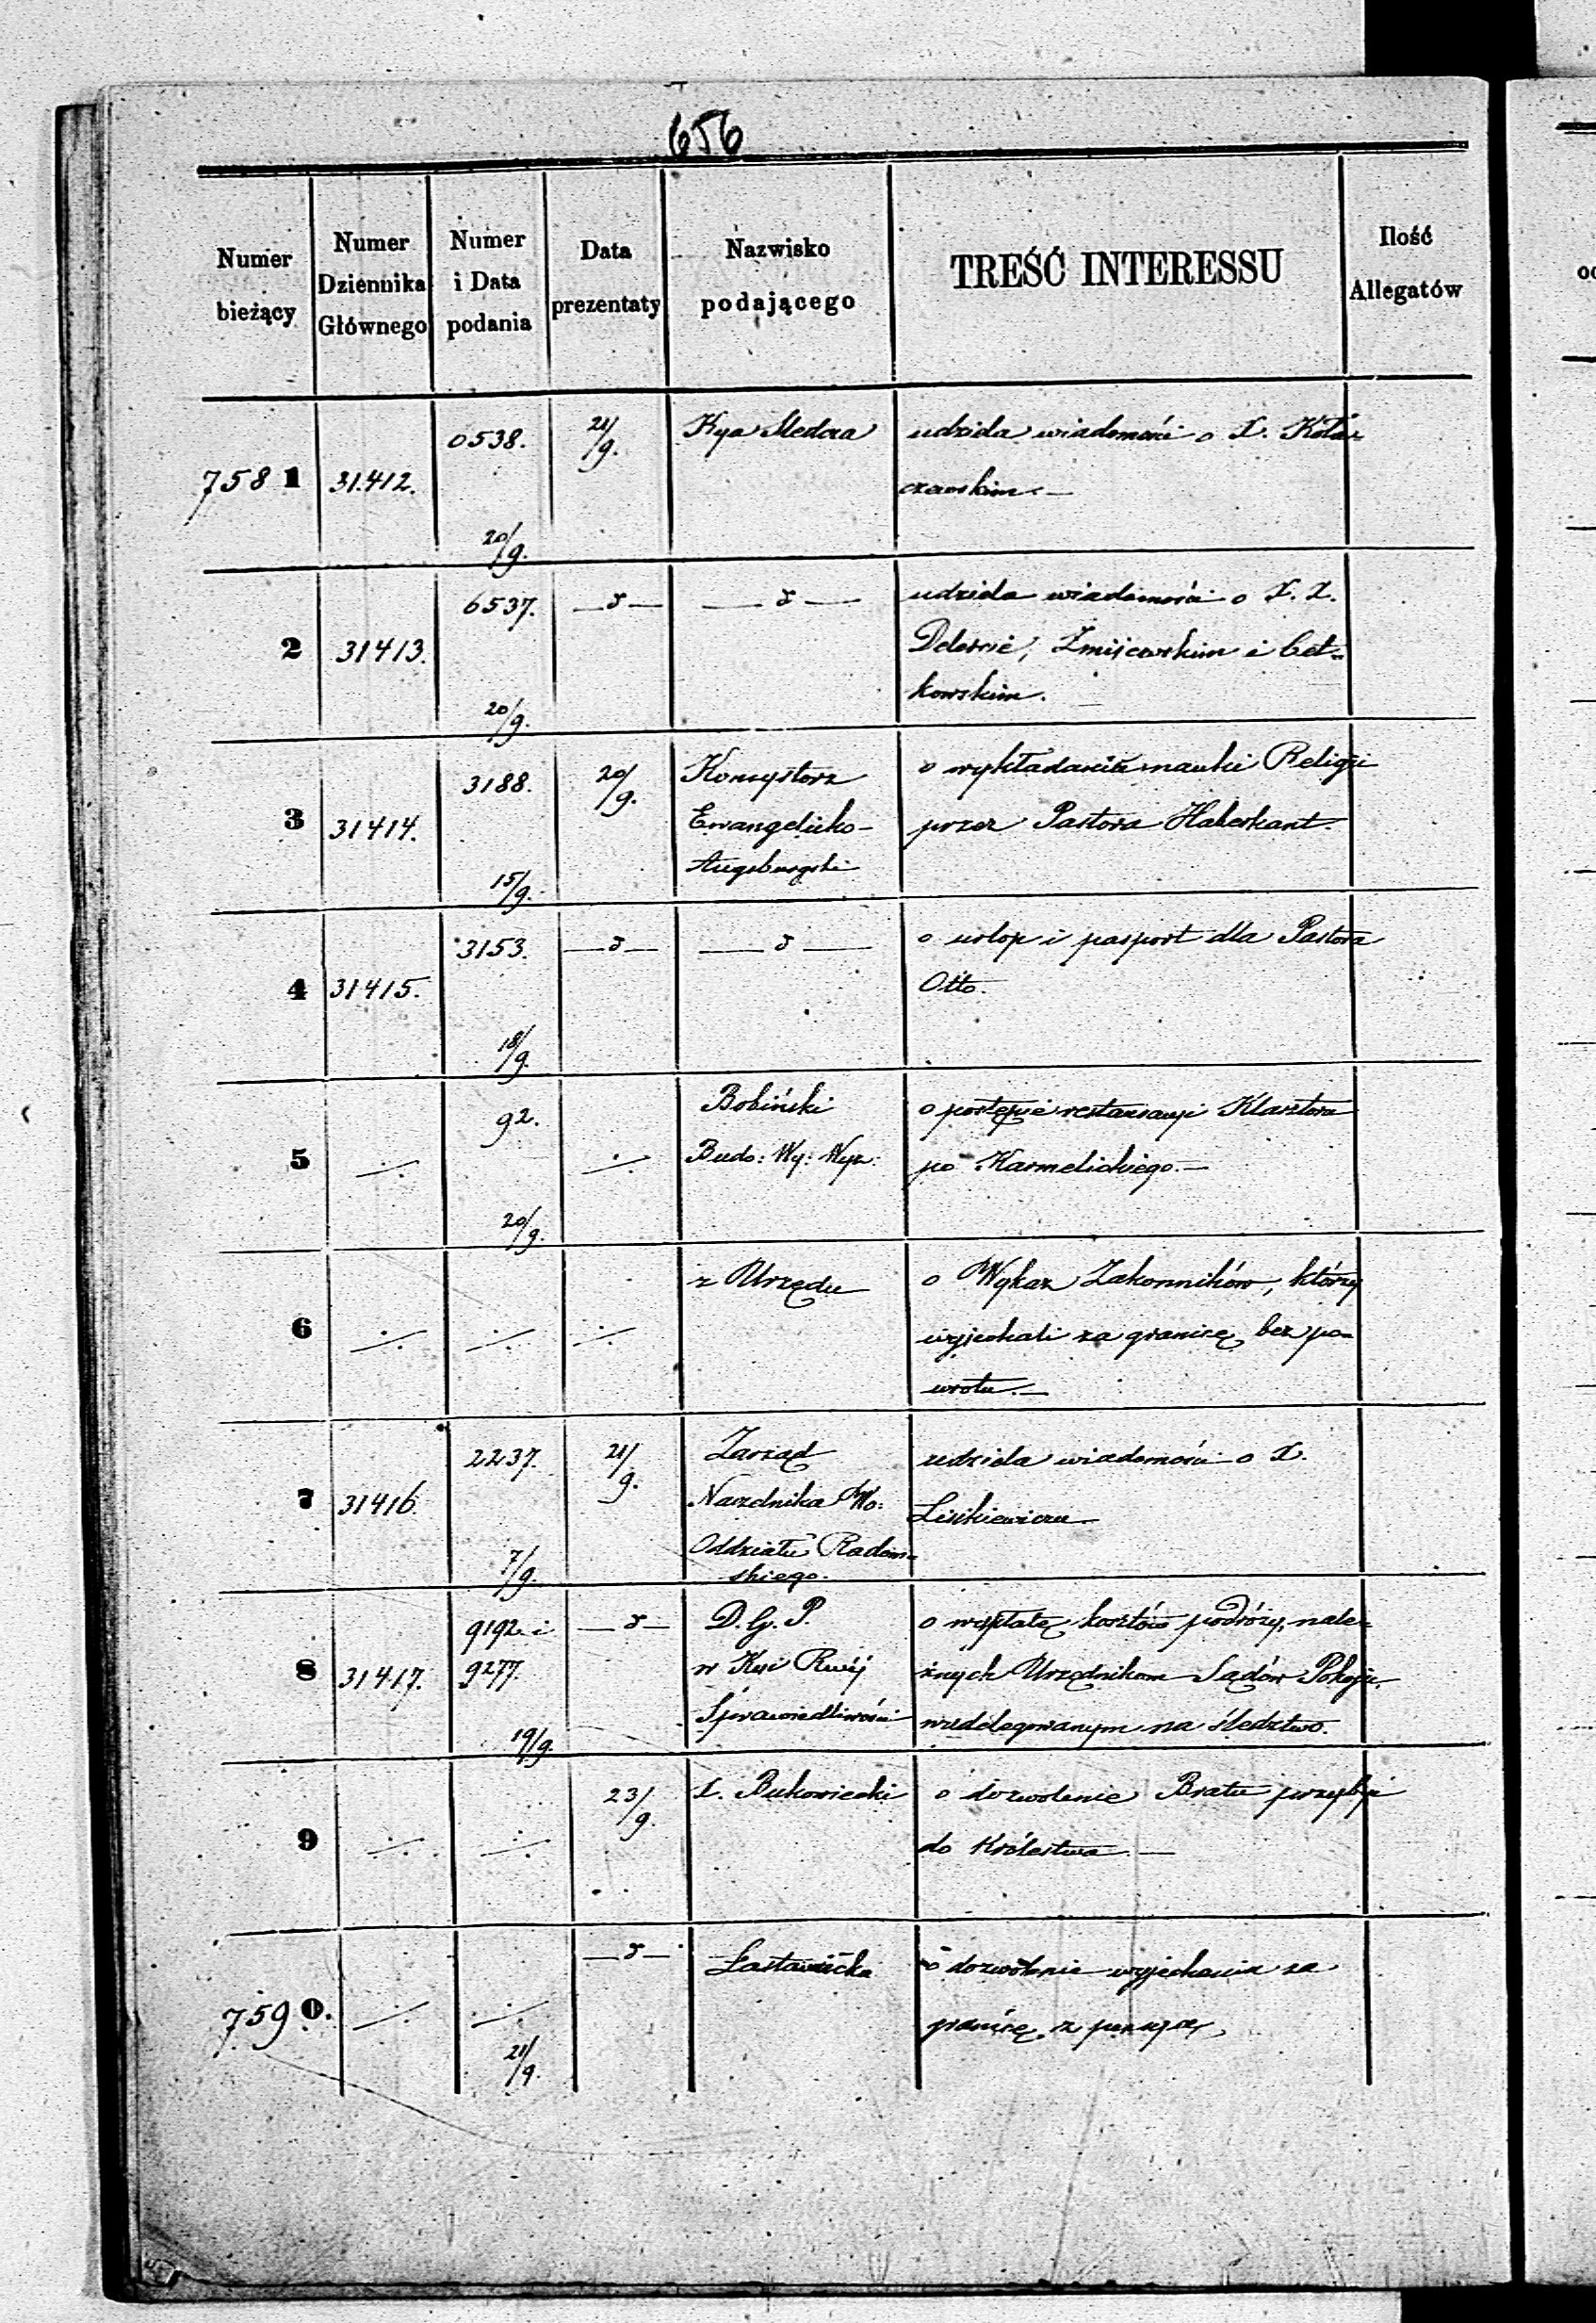 656
Numer bieżący | Numer Dziennika Głównego | Numer i Data podania | Data prezentaty | Nazwisko podającego | TREŚĆ INTERESSU | Ilość Allegatów
7581 | 31.412. | 0538. 20/9. | 21/9. | Kya Śledcza | udziela wiadomość o X. Kołac
czewskim.—
2 | 31413. | 6537. 20/9. | —d— | —d— | udziela wiadomość o X. X.
Delercie, Żmijewskim i Cet-
kowskim.
3 | 31414. | 3188. 15/9. | 20/9. | Konsystorz | o wykładanie nauki Religii
Ewangelicko- | przez Pastora Haberkant.
Augsburgski
4 | 31415. | 3153. 18/9. | —d— | —d— | o urlop i pasport dla Pastora
Otto.
5 | ·/· | 92. 20/9. | ·/· | Bobiński | o postępie restauracyi Klasztoru
Budo: Wy: Wyz: | po Karmelickiego.—
6 | ·/· | ·/· | ·/· | z Urzędu | o Wykaz Zakonników, którzy
wyjechali za granicę bez po-
wrotu.—
7 | 31416. | 2237. 7/9. | 21/9. | Zarząd | udziela wiadomość o X.
Naczelnika Wo: | Lisikiewiczu
Oddziału Radom-
skiego.
8 | 31417. | 9192 i | —d— | D. G. P. | o wypłatę kosztów podróży, nale-
9277. 19/9. | w Kyi Rwéj | żnych Urzędnikom Sądów Pokoju,
Sprawiedliwości | wydelegowanym na śledztwo.
9 | ·/· | ·/· | 23/9. | X. Bukowiecki | o dozwolenie Bratu przybyć
do Królestwa.—
7590. | ·/· | ·/· 21/9. | —d— | Łastawiecka | o dozwolenie wyjechania za
granicę z